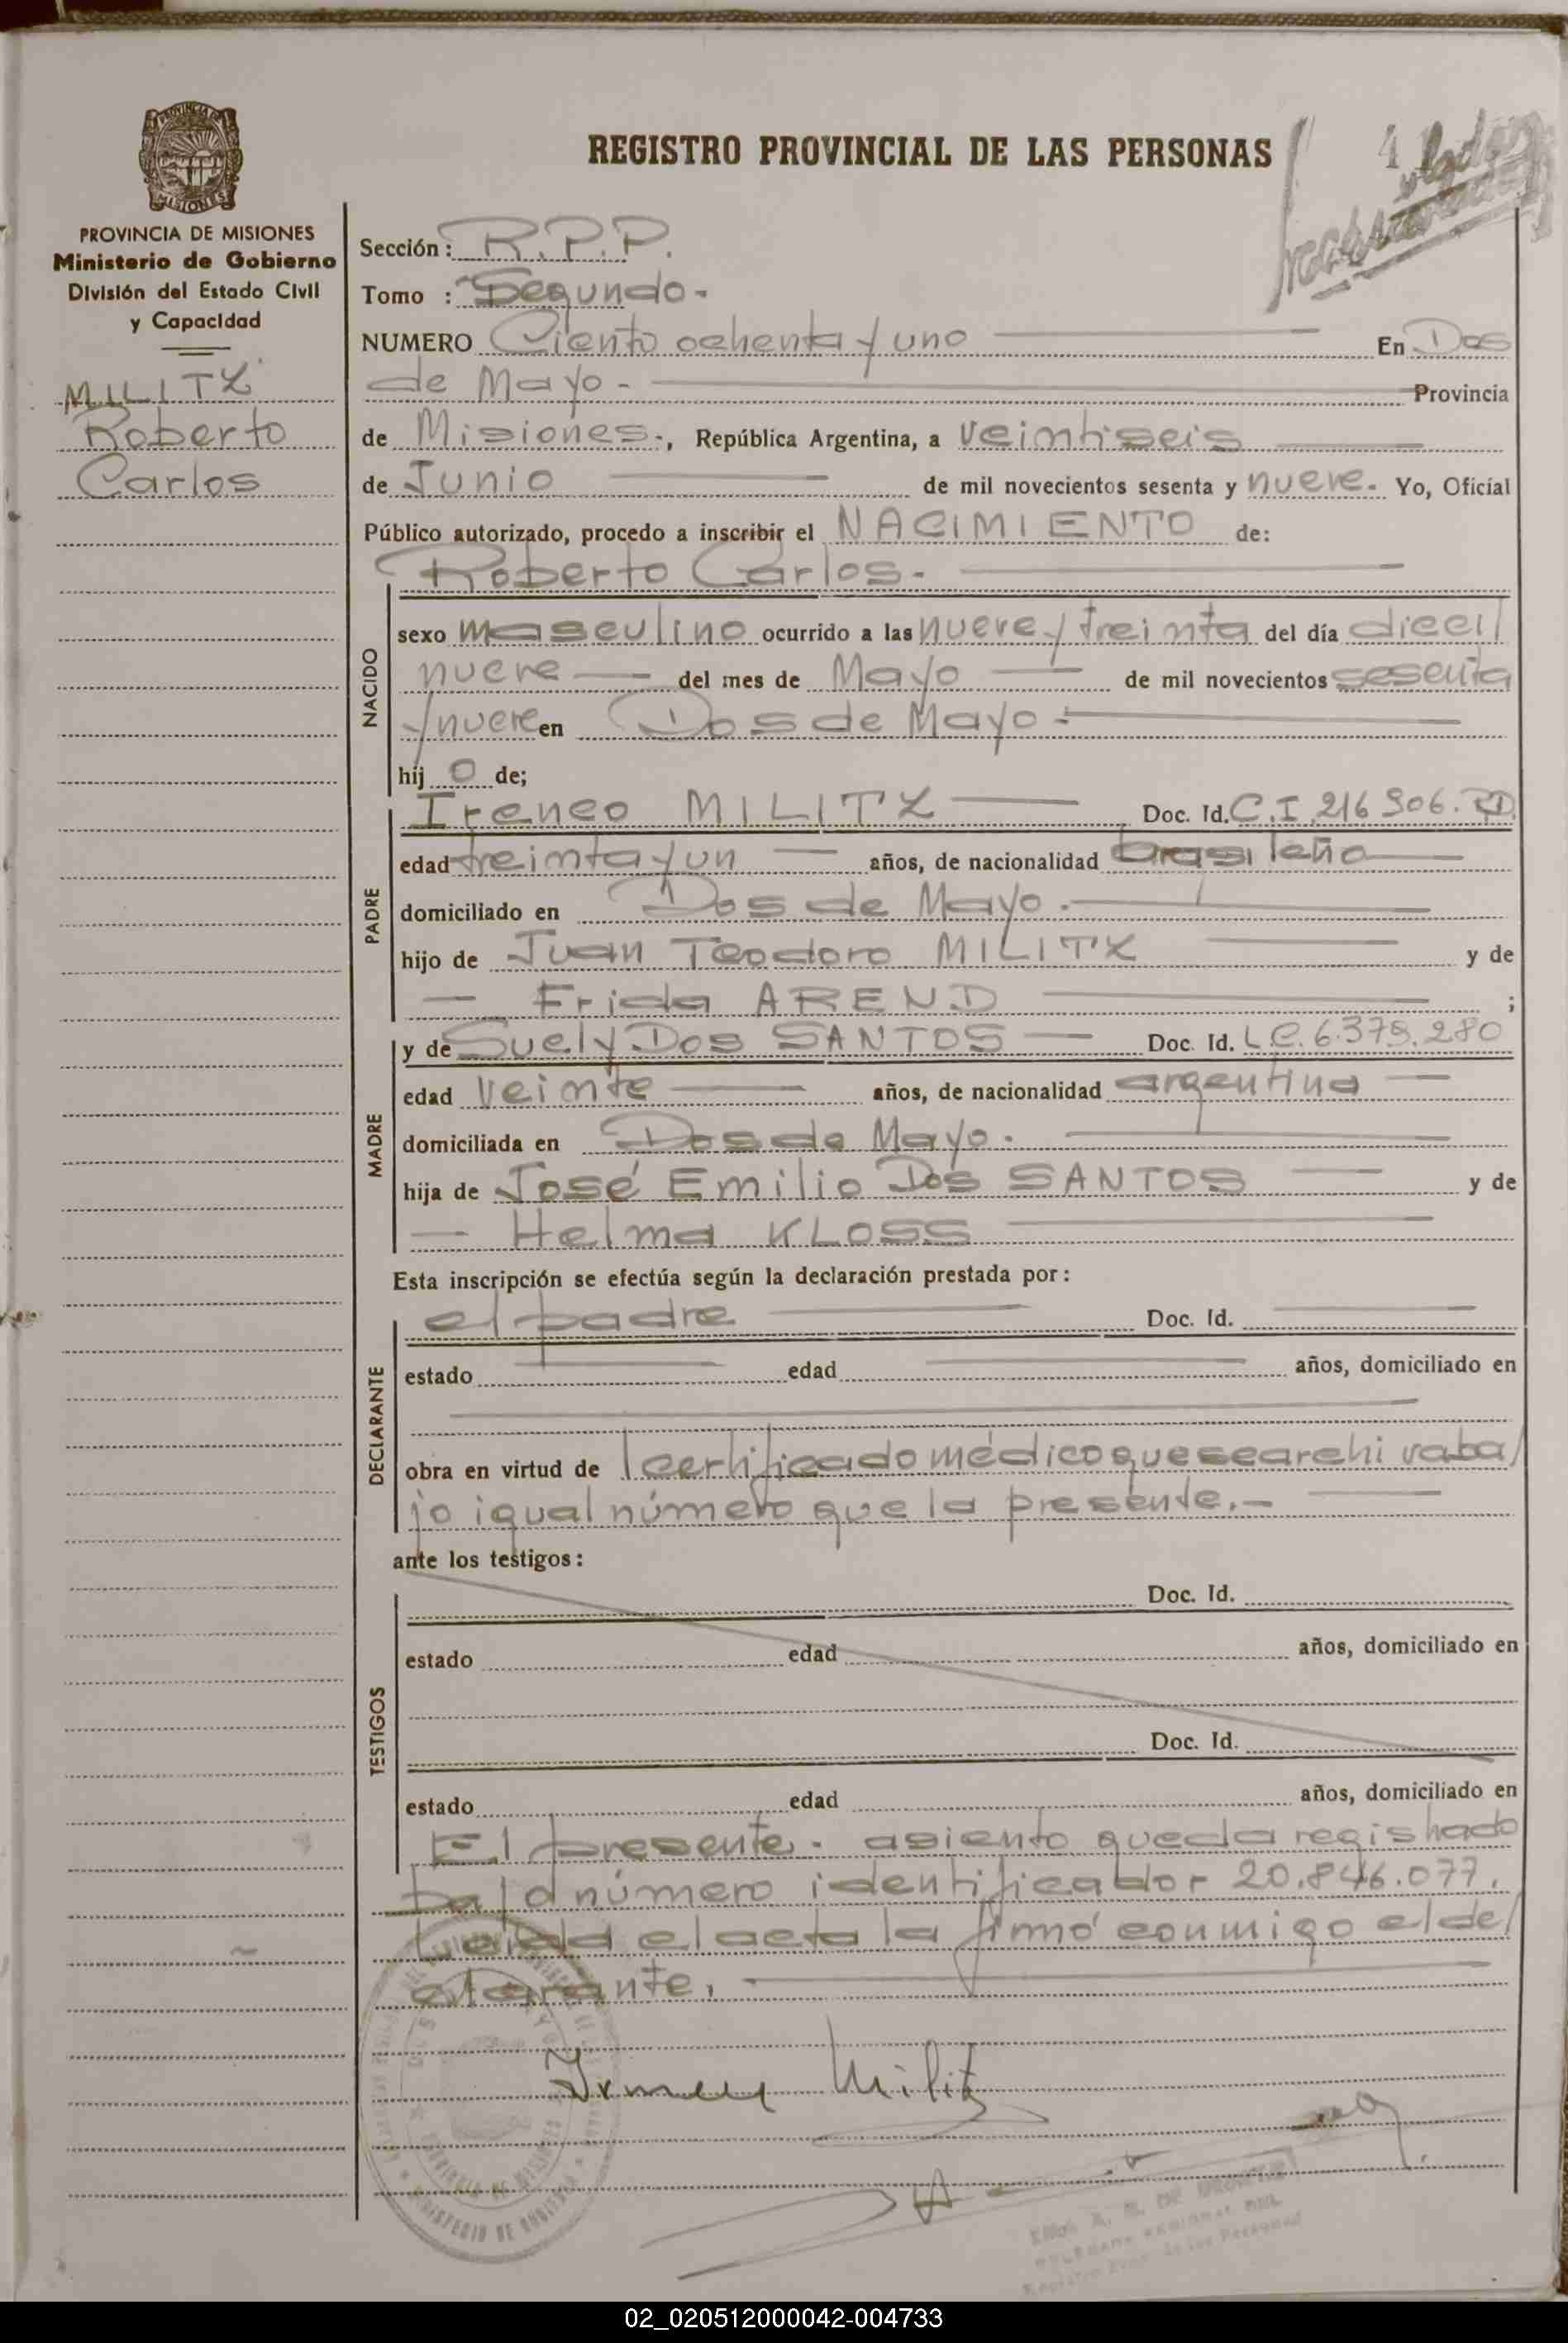 REGISTRO PROVINCIAL DE LAS PERSONAS
PROVINCIA DE MISIONES
MISIONES
PROVINCIA DE MISIONES
Ministerio de Gobierno
División del Estado Civil
y Capacidad
MILITZ
Roberto
Carlos
Sección: R.P.P.
Tomo : Segundo.-
NUMERO Ciento ochenta y uno En Dos
de Mayo.- Provincia
de Misiones.-, República Argentina, a veintiseis
de Junio de mil novecientos sesenta y nueve.- Yo, Oficial
Público autorizado, procedo a inscribir el NACIMIENTO de:
Roberto Carlos.-
NACIDO
sexo masculino ocurrido a las nueve y treinta del día dieci/
nueve del mes de Mayo de mil novecientos sesenta
y nueve en Dos de Mayo.-
hij o de;
PADRE
Ireneo MILITZ Doc. Id. C.I. 216.906.
edad treinta y un años, de nacionalidad brasileña
domiciliado en Dos de Mayo.-
hijo de Juan Teodoro MILITZ y de
Frida AREND ;
MADRE
y de Suely Dos SANTOS Doc. Id. L.C. 6.379.280
edad veinte años, de nacionalidad argentina
domiciliada en Dos de Mayo.-
hija de José Emilio Dos SANTOS y de
Helma KLOSS
Esta inscripción se efectúa según la declaración prestada por:
DECLARANTE
el padre Doc. Id.
estado edad años, domiciliado en
obra en virtud de l certificado médico que se archiva ba/
jo igual número que la presente.-
ante los testigos:
TESTIGOS
Doc. Id.
estado edad años, domiciliado en
Doc. Id.
estado edad años, domiciliado en
El presente asiento queda registrado
bajo número identificador 20.846.077.
Leída el acta la firmó conmigo el de/
clarante.
Militz
02_020512000042-004733